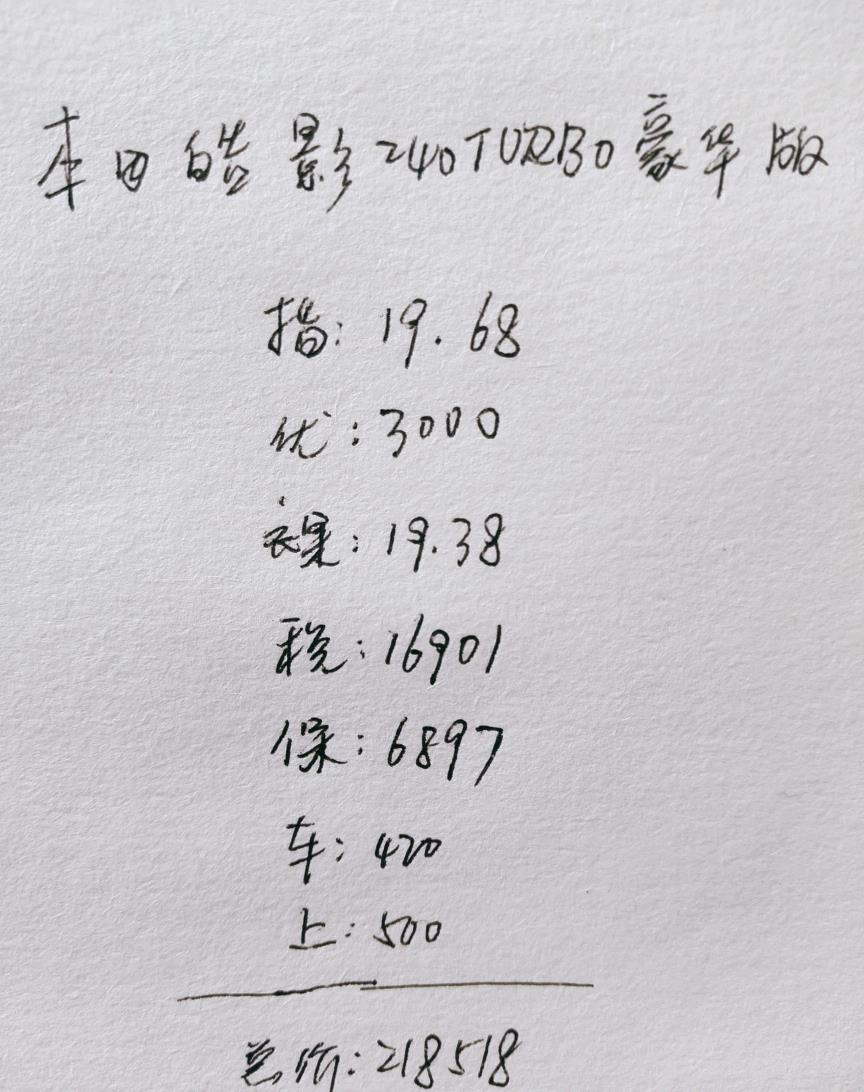 本田皓影240TURBO豪华版
指:19.68
优:3000
裸:19.38
税:16901
保:6897
车:420
上:500
总价:218518